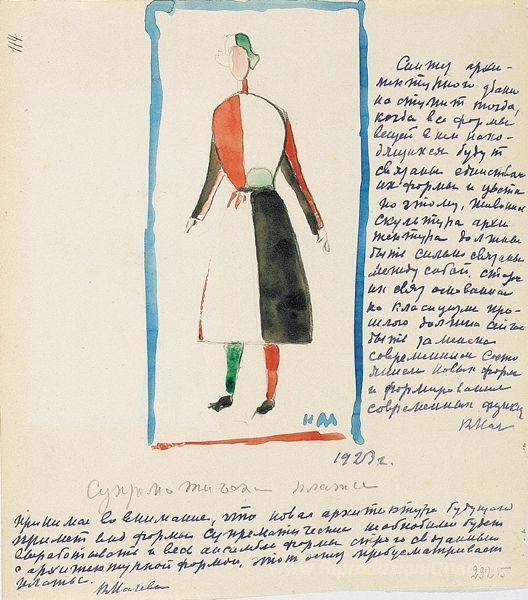 114.
Синтез архи-
тектурного здани
наступит тогда,
когда все формы
вещей в нем нахо-
дящихся будут
связаны единством
их формы и цвета
поэтому, живопись
скульптура архи
тектура должны
быть сильно связаны
между собой,
связ основанная
на классицизме про-
шлого должна
быть заменена
современным
новых форм
и формированием
современных
К Мал
КМ
1923 г.
Супрематическ платье
принимая во внимание, что новая архитектура будущего
примет вид формы супрематические необходимо будет
выработать и весь ансамбль формы строго связанный
с архитектурной формою, этот эскиз предусматривает
платье.
К Малевич
29215